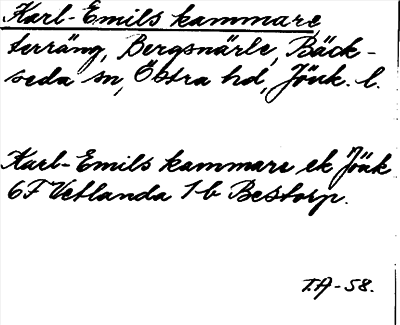 Karl-Emils kammare,
terräng, Bergsnärle, Bäck-
seda sn, Östra hd, Jönk. l.
Karl-Emils kammare ek Jönk
6F Vetlanda 1b Bestorp.
T.A-58.